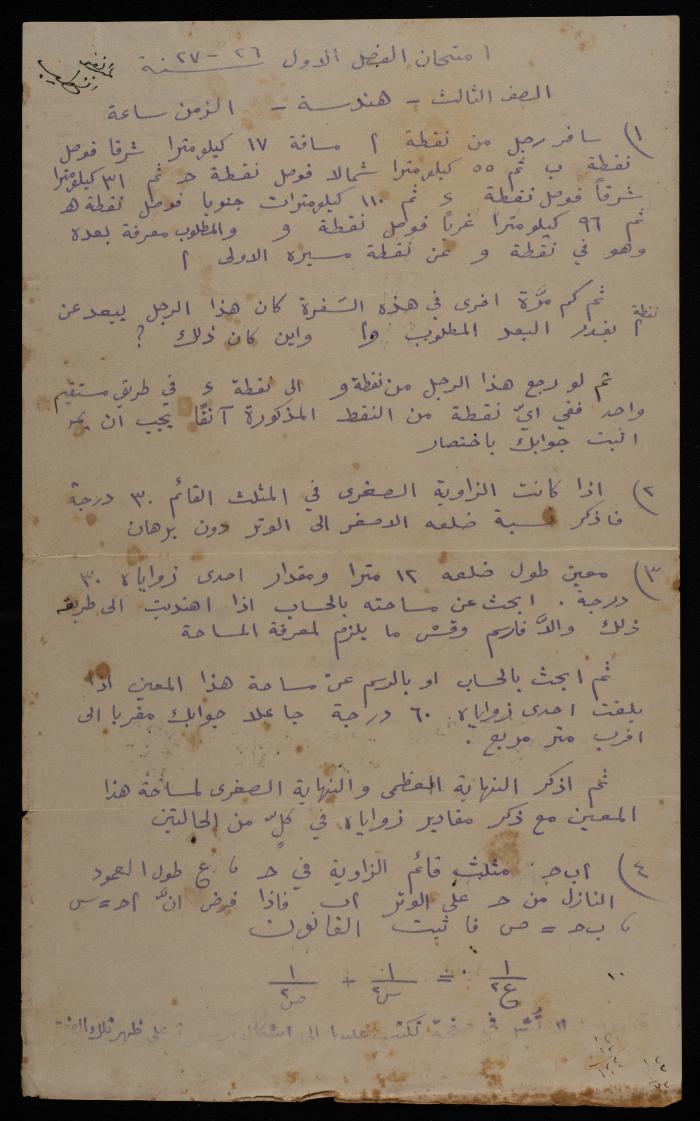 امتحان الفصل الاول سنة ٢٦ - ٢٧
الصف الثالث - هندسة - الزمن ساعة
١) سافر رجل من نقطة ا مسافة ١٧ كيلومترا شرقا فوصل
نقطة ب ثم ٥٥ كيلومترا شمالا فوصل نقطة ح ثم ٣١ كيلومترا
شرقاً فوصل نقطة ء ثم ١١٠ كيلومترات جنوبا فوصل نقطة ه
ثم ٩٦ كيلومترا غرباً فوصل نقطة و والمطلوب معرفة بعده
وهو في نقطة و عن نقطة مسيره الاولى ا
ثم كم مرَّة اخرى في هذه السَفرة كان هذا الرجل يبعد عن
نقطة ا بقدر البعد المطلوب وا واين كان ذلك ؟
ثم لو رجع هذا الرجل من نقطة و الى نقطة ء في طريق مستقيم
واحد ففي ايّ نقطة من النقط المذكورة آنفًا يجب ان يمر
اثبت جوابك باختصار
٢) اذا كانت الزاوية الصغرى في المثلث القائم ٣٠ درجة
فاذكر نسبة ضلعه الاصغر الى الوتر دون برهان
٣) معين طول ضلعه ١٢ مترا ومقدار احدى زواياه ٣٠
درجة . ابحث عن مساحته بالحساب اذا اهتديت الى طريقة
ذلك والاَّ فارسم وقس ما يلزم لمعرفة المساحة
ثم ابحث بالحساب او بالرسم عن مساحة هذا المعين اذا
بلغت احدى زواياه ٦٠ درجة جاعلا جوابك مقربا الى
اقرب متر مربع .
ثم اذكر النهاية العظمى والنهاية الصغرى لمساحة هذا
المعين مع ذكر مقادير زواياه في كلٍّ من الحالتين
٤) ا ب ح مثلث قائم الزاوية في ح ، ع طول العمود
النازل من ح على الوتر ا ب فاذا فرض انَّ ا ح = س
، ب ح = ص فاثبت القانون
١/ع٢ = ١/س٢ + ١/ص٢
١٠
في صفحة تكتب عليها الى اشكال على ظهر تلك